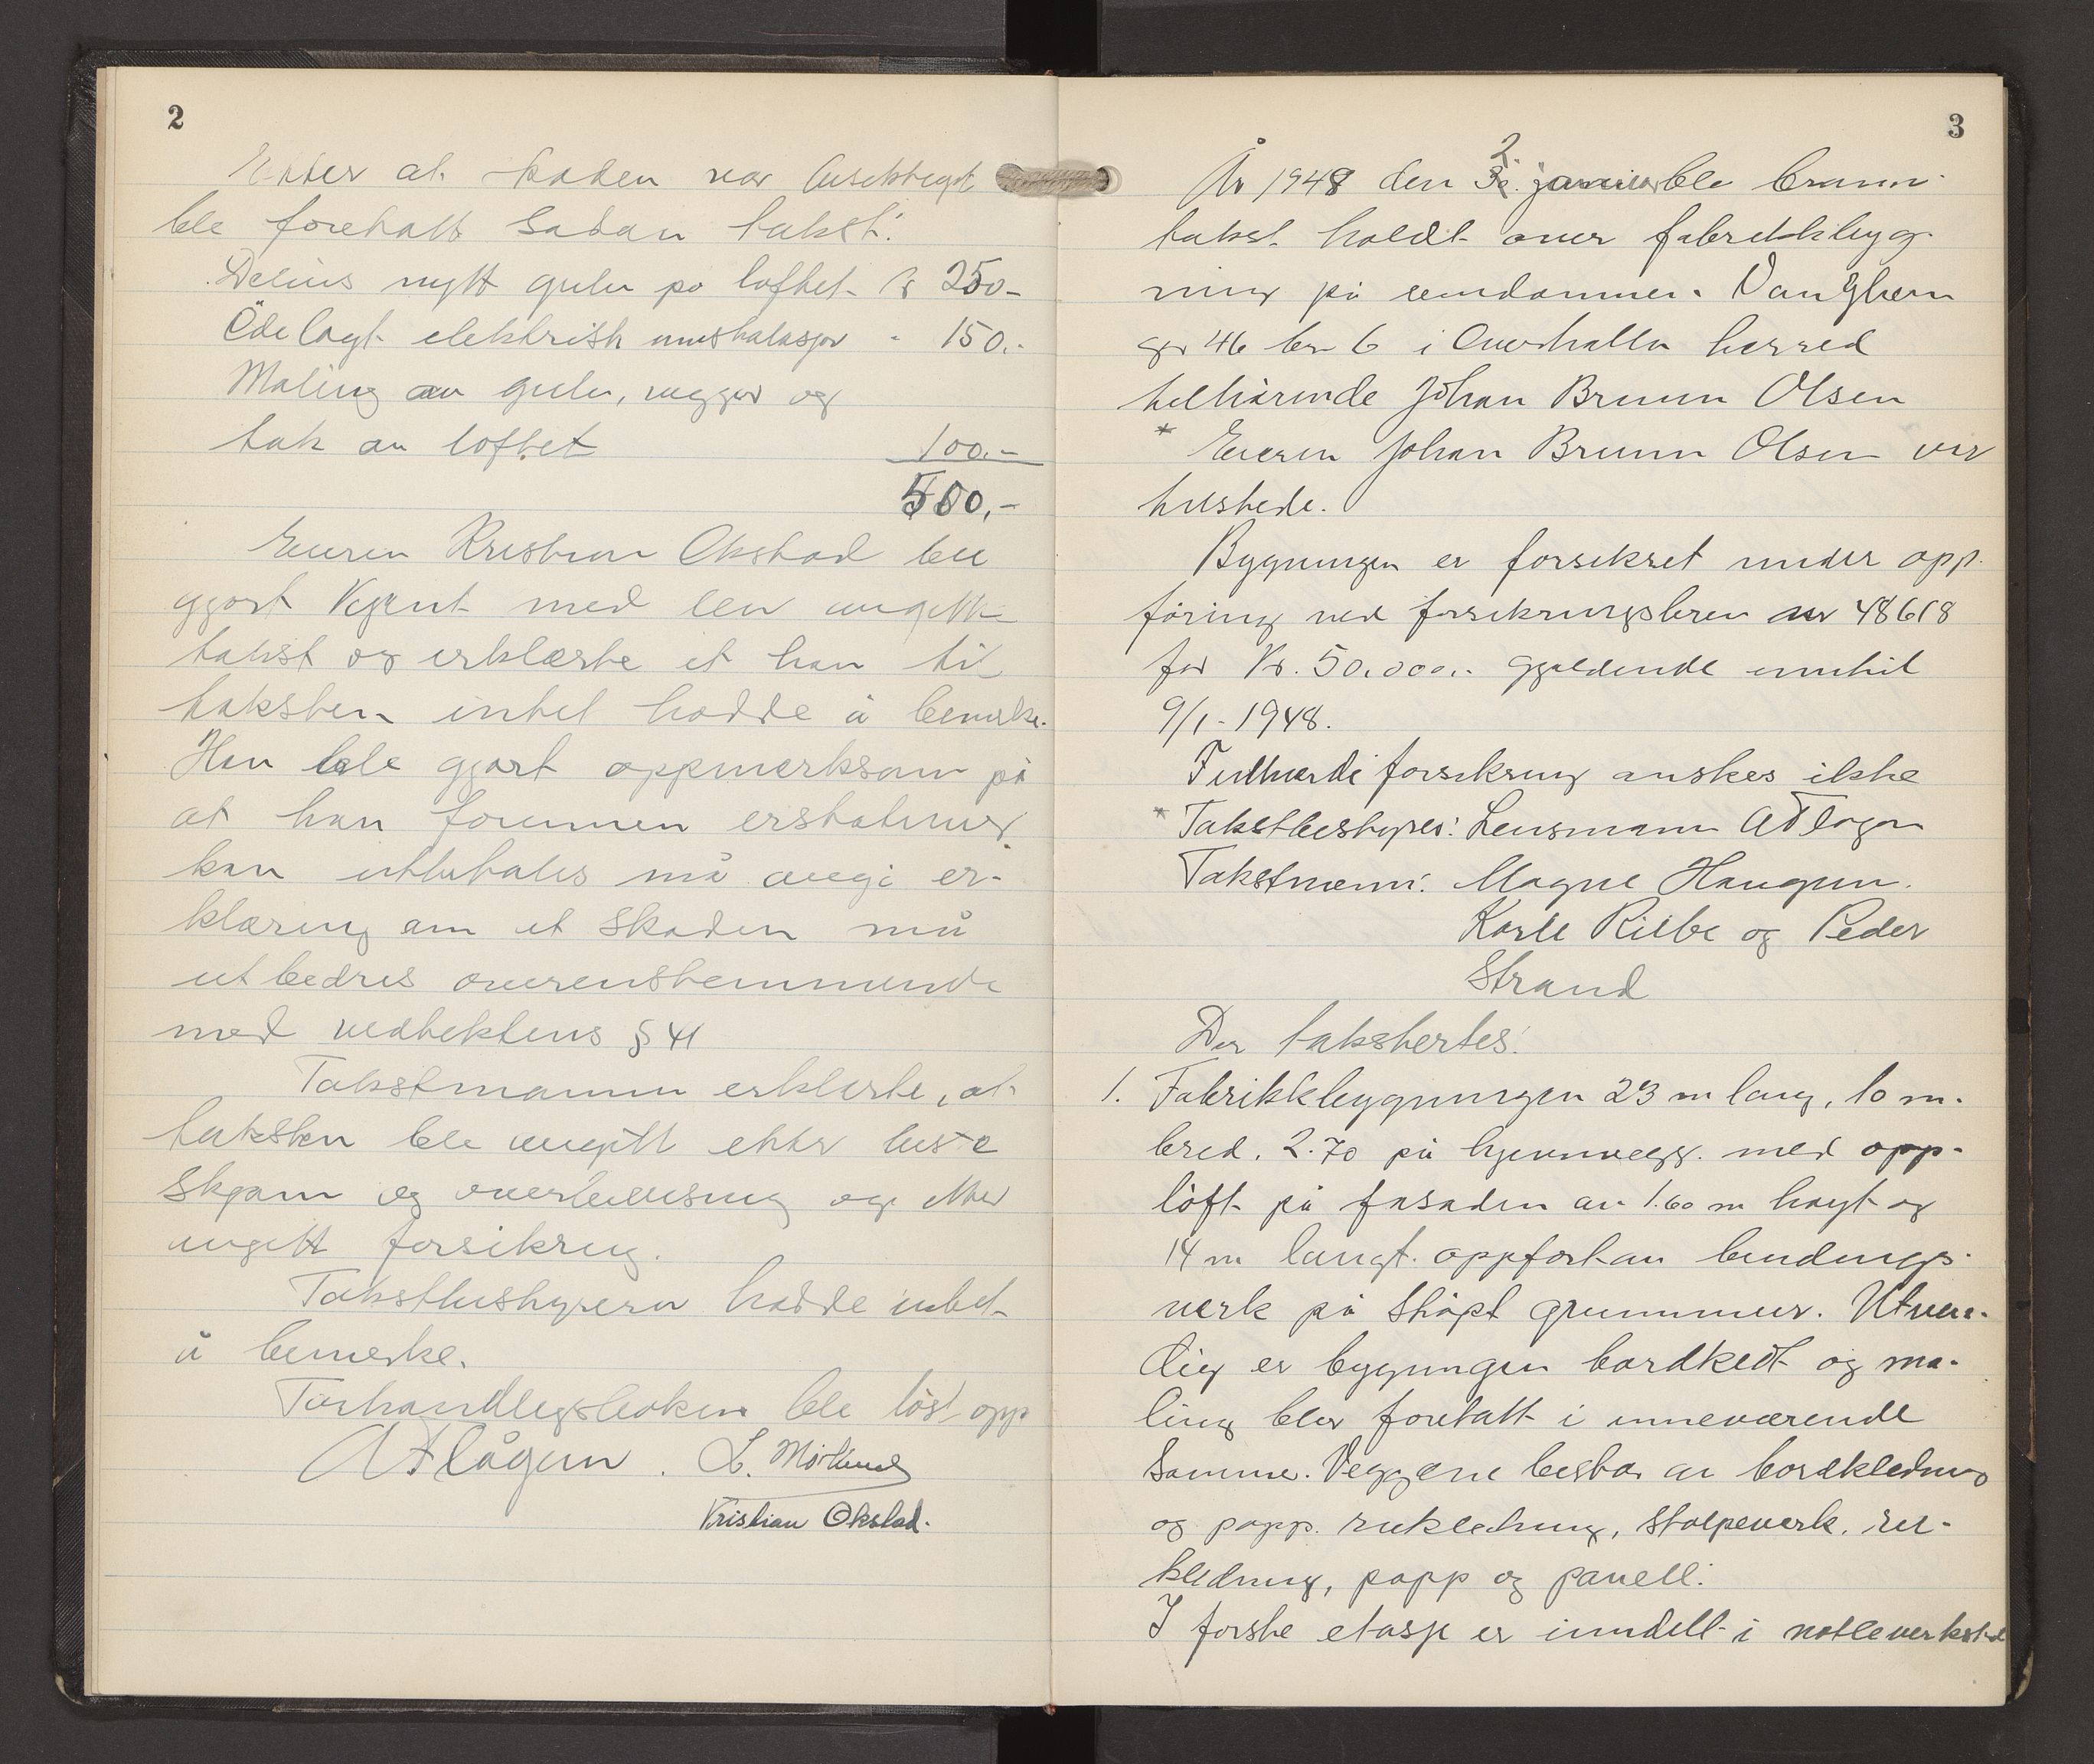 2
Etter at skaden var besiktiget
ble foretatt sådan takst:
Delvis nytt gulv på loftet kr 250.-
Ödelagt elektrisk innstalasjon " 150.-
Maling av gulv, vegger og
tak av loftet 100.-
500.-
Eieren Kristian Okstad ble
gjort kjent med den avgitte
takst og erklærte at han til
taksten intet hadde å bemerke.
Han ble gjort oppmerksom på
at han forinnen erstatning
kan utbetales må avgi er-
klæring om at skaden må
utbedres overenstemmende
med vedtektens § 41
Takstmannen erklærte, at
taksten ble avgitt etter beste
skjønn og overbevisning og etter
avgitt forsikring.
Takstbestyreren hadde intet
å bemerke.
Forhandlingsboken ble löst opp
A Flågen. L.
Kristian Okstad.
3
År 1948 den 2. januar ble brann-
takst holdt over fabrikkbyg-
ning på eiendommen
gr 46 br 6 i Overhalla herred
tilhörende Johan Bruun Olsen
* Eieren Johan Bruun Olsen var
tilstede.
Bygningen er forsikret under opp-
föring ved forsikringsbrev nr 48618
for Kr. 50.000.- gjeldende inntil
9/1-1948.
Fullverdiforsikring önskes ikke
* Takstbestyrer: Lensmann A Flågen
Takstmenn: Magne Haugen.
Karle Rilbe og Peder
Strand
Der taksertes:
1. Fabrikkbygningen 23 m lang, 10 m.
bred. 2.70 på hjernvegg. med opp-
löft på fasaden av 1.60 m höyt og
14 m langt. oppfört av bindings-
verk på stöpt grunnmur. Utven-
dig er bygningen bordkledt og ma-
ling blev foretatt i inneværende
Sommer. Veggene består av bordkledning
og papp. rukledning, stolpeverk. ru-
kledning, papp og panell.
I forste etasje er inndelt i motleverksted